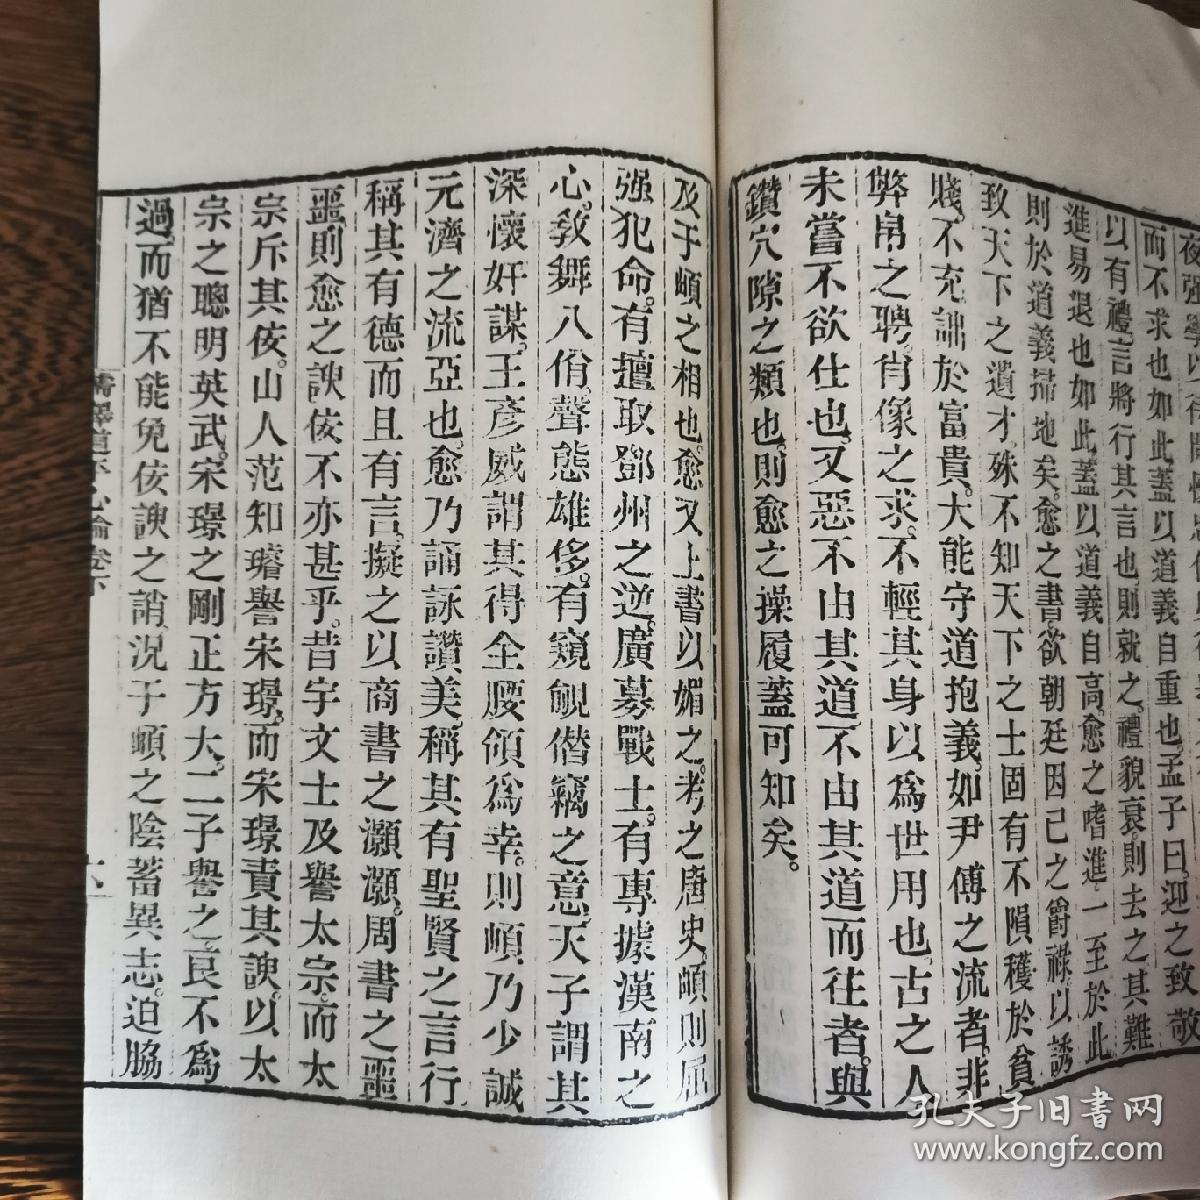 而不求也如此蓋以道義自重也孟子曰迎之致敬
以有禮言將行其言也則就之禮貌衰則去之其難
進易退也如此蓋以道義自高愈之嗜進一至於此
則於道義掃地矣愈之書欲朝廷因己之爵祿以誘
致天下之遺才殊不知天下之士固有不隕穫於貧
賤不充詘於富貴大能守道抱義如尹傅之流者非
弊帛之聘肖像之求不輕其身以為世用也古之人
未嘗不欲仕也又惡不由其道不由其道而往者與
鑽穴隙之類也則愈之操履蓋可知矣。
及于頔之相也愈又上書以媚之考之唐史頔則屈
强犯命有擅取鄧州之逆廣募戰士有專據漢南之
心教舞八佾聲態雄侈有窺覦僭竊之意天子謂其
深懷奸謀王彥威謂其得全腰領爲幸則頔乃少誠
元濟之流亞也愈乃誦詠讚美稱其有聖賢之言行
稱其有德而且有言擬之以商書之灝灝周書之噩
噩則愈之諛佞不亦甚乎昔宇文士及譽太宗而太
宗斥其佞山人范知璿譽宋璟而宋璟責其諛以太
宗之聰明英武宋璟之剛正方大二子譽之良不爲
過而猶不能免佞諛之誚況于頔之陰蓄異志迫脇
儒釋道平心論卷下
孔夫子旧书网
www.kongfz.com